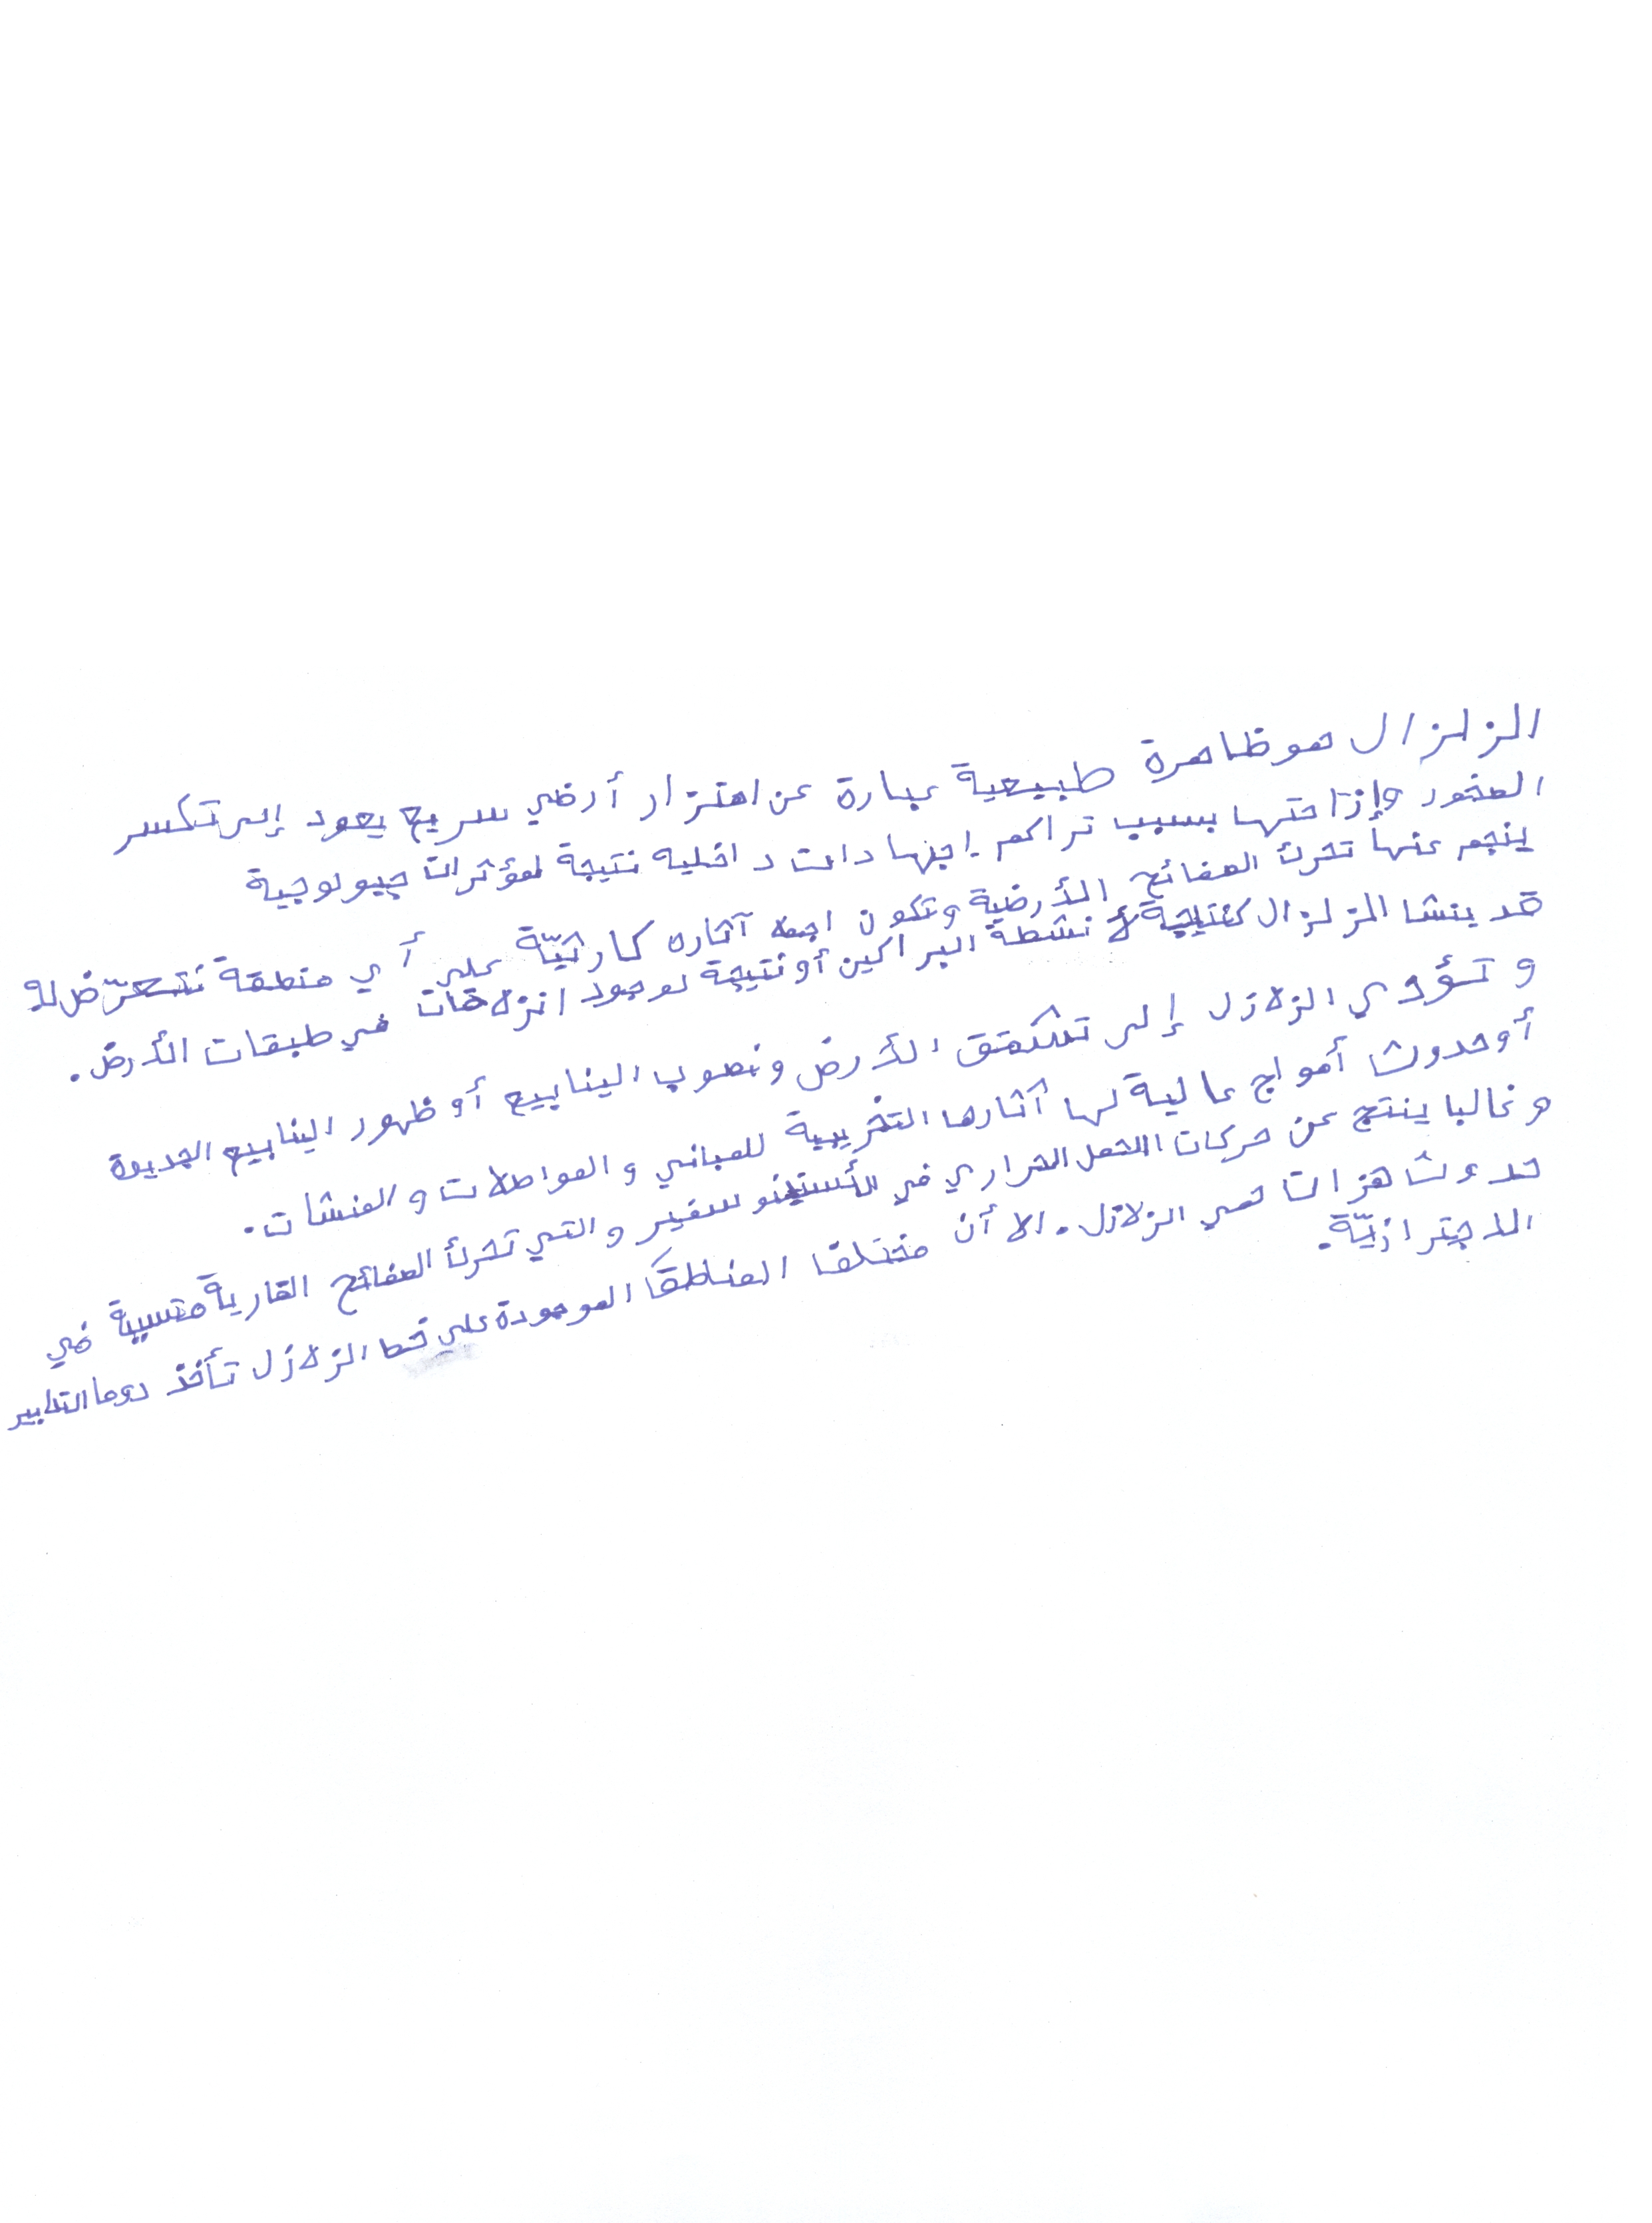 الزلزال هو ظاهرة طبيعية عبارة عن اهتزاز أرضي سريع يعود إلى تكسر
الصخور وإزاحتها بسبب تراكم اجهادات داخليه نتيجة لمؤثرات جيولوجية
ينجم عنها تحرك الصفائح الأرضية وتكون آثاره كارثيّة على أي منطقة تتعرّض له
قد ينشا الزلزال كنتيجة لأنشطة البراكين أو نتيجة لوجود انزلاقات في طبقات الأرض.
و تؤدي الزلازل إلى تشقق الأرض ونضوب الينابيع أو ظهور الينابيع الجديدة
أو حدوث أمواج عالية لها آثارها التخريبية للمباني و المواصلات و المنشات.
و غالبا ينتج عن حركات الحمل الحراري في الأستينوسفير و التي تحرك الصفائح القارية متسببة في
حدوث هزات هي الزلازل. الا أن مختلف المناطق الموجودة على خط الزلازل تأخذ دوما التدابير
الاحترازيّة.